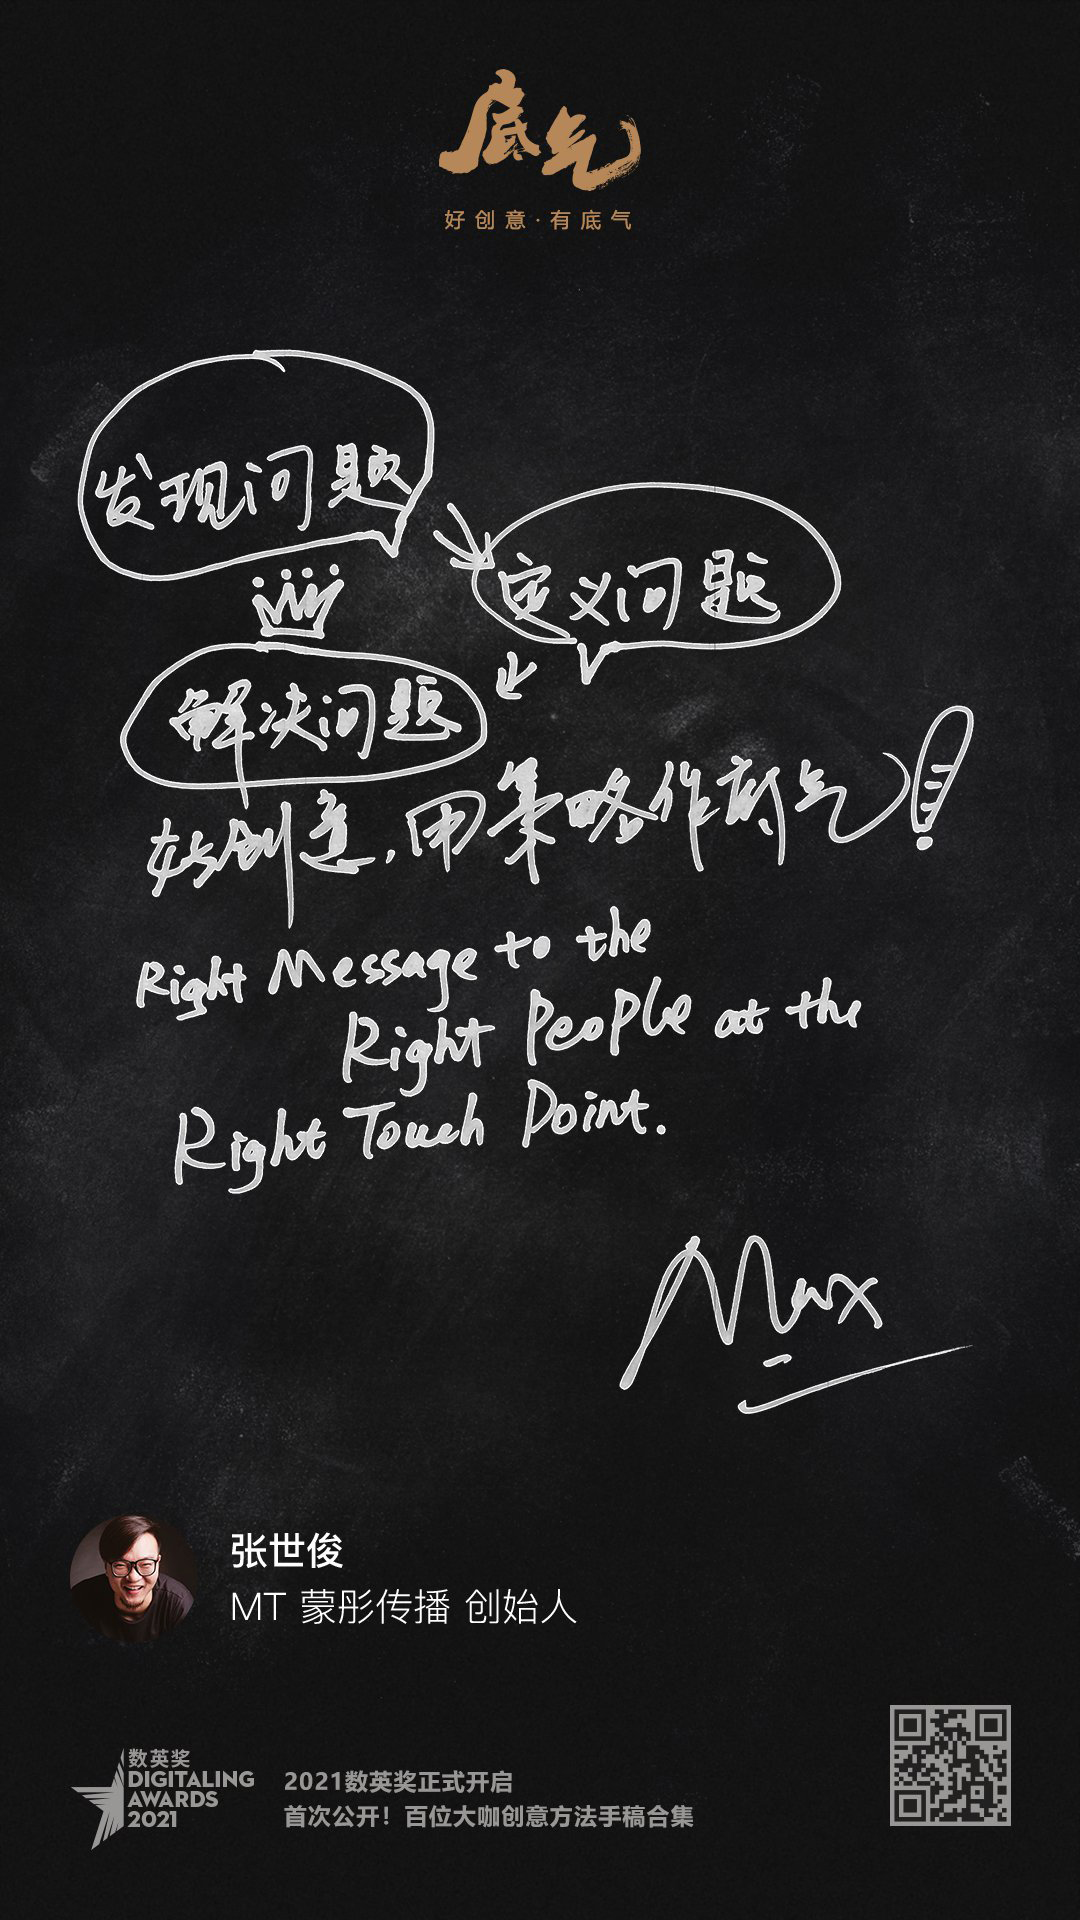 底气
好创意·有底气
发现问题
定义问题
解决问题
好创意,用策略作底气!
Right Message to the
Right People at the
Right Touch Point.
Max
张世俊
MT 蒙彤传播 创始人
数英奖
DIGITALING
AWARDS
2021
2021数英奖正式开启
首次公开!百位大咖创意方法手稿合集